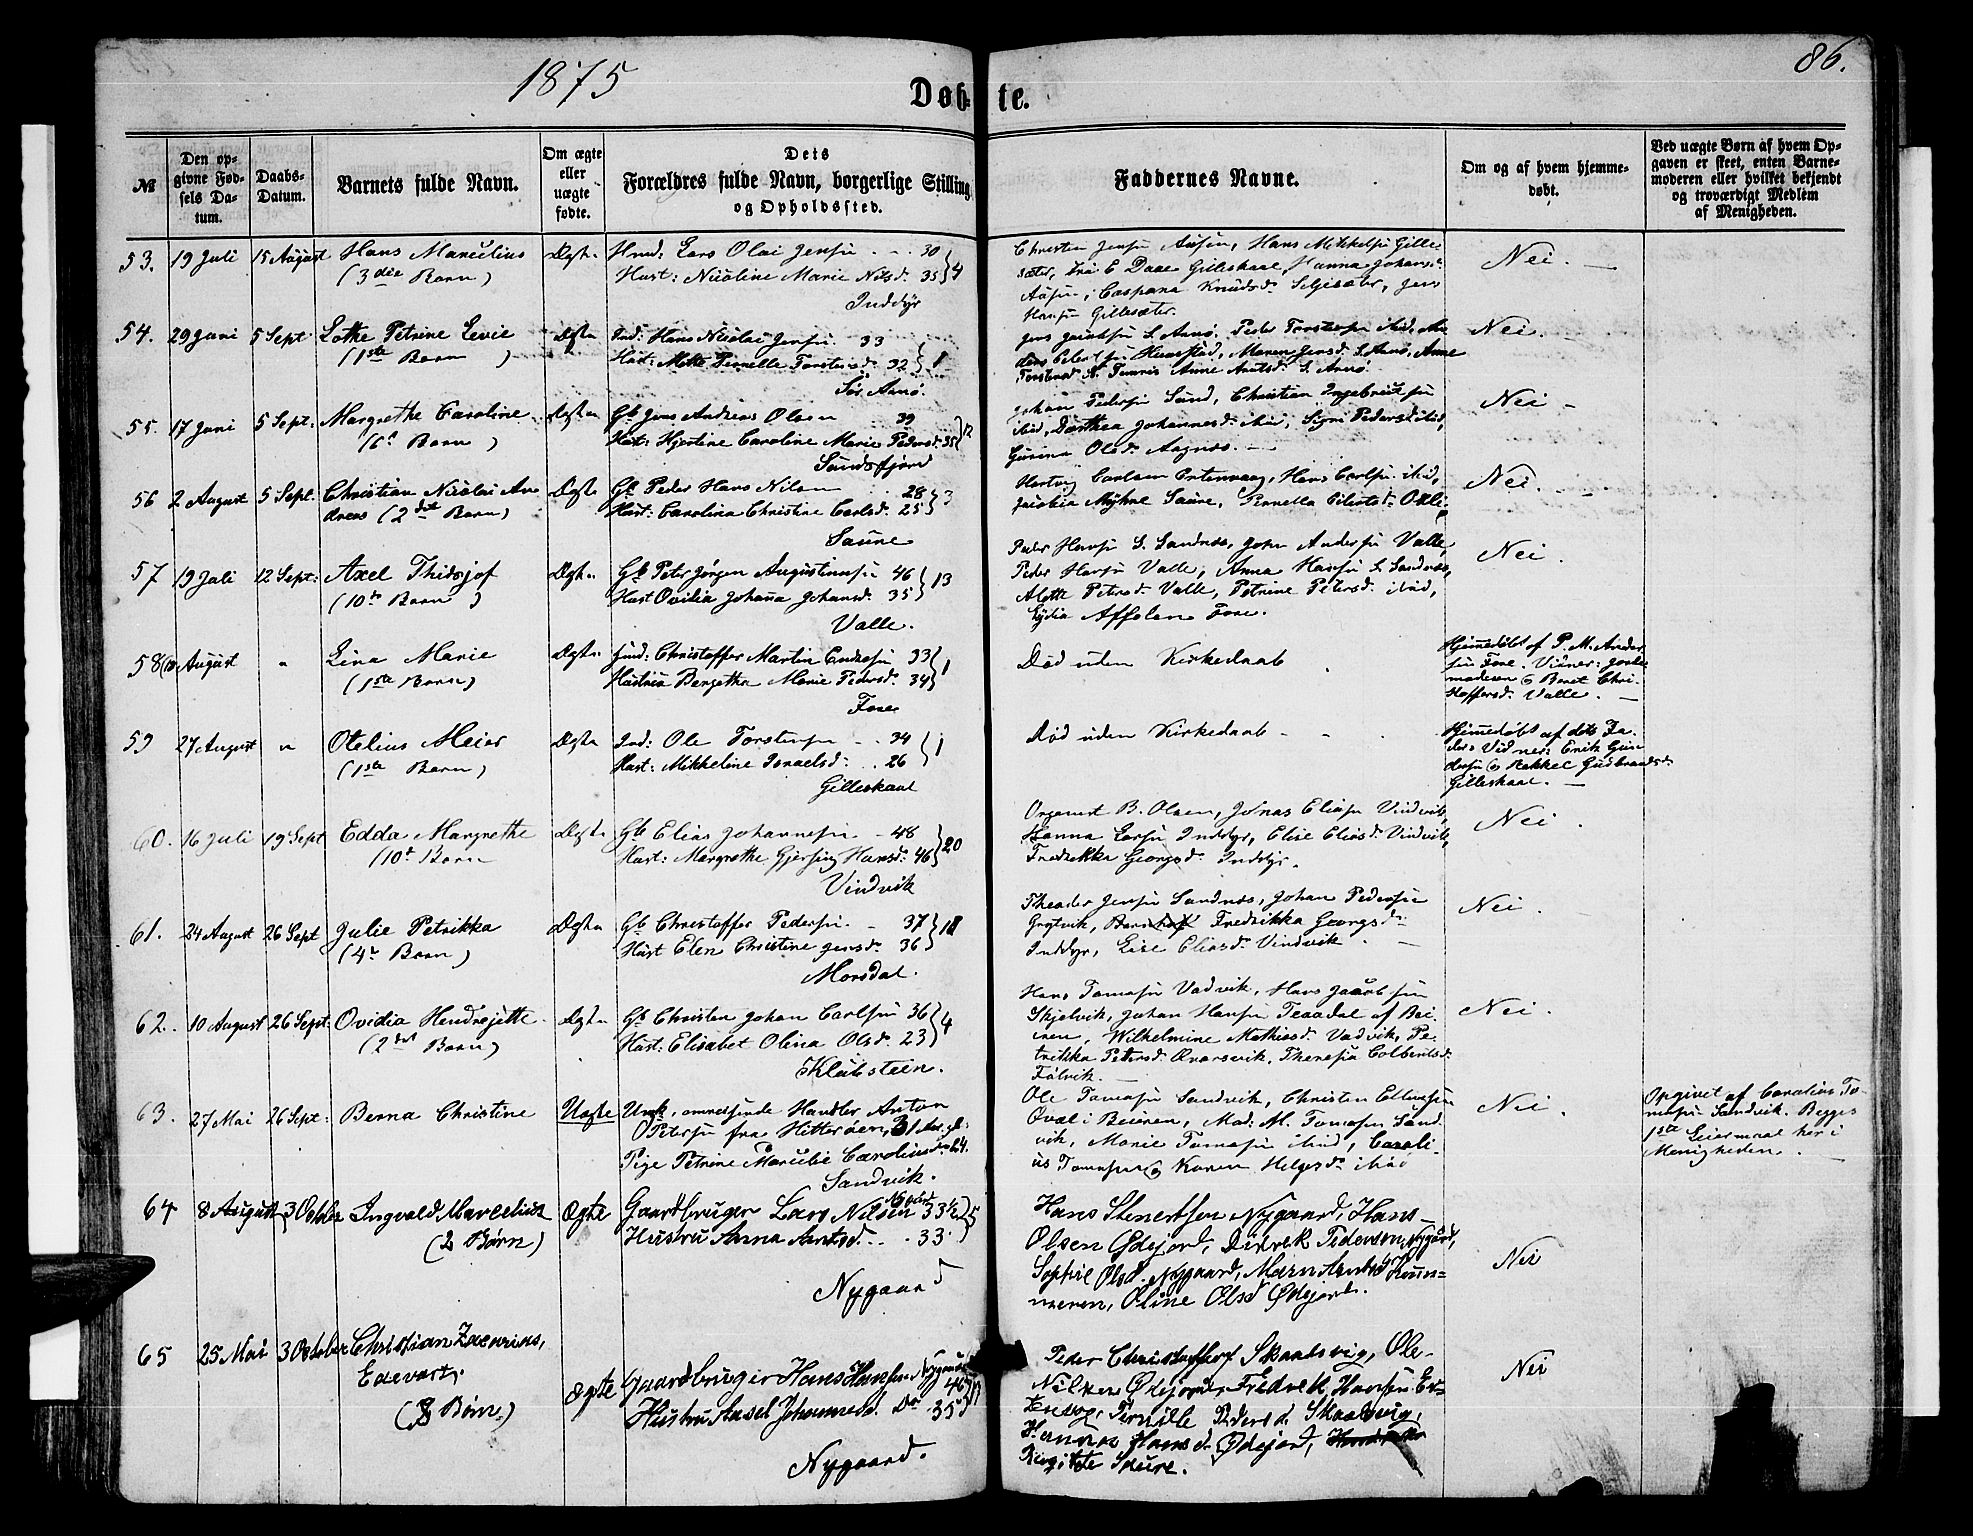 1875
86.
Døbte.
№
Den opgivne Fødsels Datum.
Daabs-Datum.
Barnets fulde Navn.
Om ægte eller uægte fødte.
Dets Forældres fulde Navn, borgerlige Stilling og Opholdssted.
Faddernes Navne.
Om og af hvem hjemmedøbt.
Ved uægte Børn af hvem Opgaven er skeet, enten Barnemoderen eller hvilket bekjendt og troværdigt Medlem af Menigheden.
53. 19 Juli 15 August Hans Marculius
(3die Barn)
Ægte
Lars Olai Jensen 30
Hust: Nicoline Marie Nilsd. 35 } 4
Inddyr
Christen Jensen Hans Mikkelsen Gille-
sæter, E Daae Gilleskaal, Hanna Johansd.
Knudsd. Jens
Hansen Gillesæter.
Nei.
54. 29 Juni 5 Sept Lothe Petrine Levie
(1ste Barn)
Ægte
Ind: Hans Nicolai Jensen 33
Hust: Mette Pernelle Torstensd. 32 } 1
Sør Arnø.
Jens Jacobsen S. Arnø, Peder Torstensen ibid,
Maren Jensd. S. Arnø, Anne
Torstensd. Anne Arntsd. S. Arnø.
Nei.
55. 17 Juni 5 Sept: Margrethe Caroline
(6te Barn)
Ægte
Gb Jens Andreas Olsen 39
Hust: Hjertine Caroline Marie Pedersd. 35 } 12
Sundsfjord
Johan Pedersen Sund, Christian Ingebrigtsen
ibid, Dorthea Johannesd. ibid, Signi Pedersd. ibid,
Gurina Olsd. Aagnæs.
Nei
56 2 August 5 Sept. Christian Nicolai An-
dreas (2det Barn)
Ægte
Gb Peder Hans Nilsen 28
Hust: Carolina Christine Carlsd. 25 } 3
Saura
Hartvig Carlsen Hans Carlsen ibid,
Jacobia Myhre Saura, Pernella
Nei.
57 19 Juli 12 Sept: Axel Thidsjof
(10de Barn)
Ægte
Gb Peter Jørgen Augustinusen 46
Hust Ovilia Johana Johansd. 35 } 13
Valle.
Peder Hansen S. Sandnæs, John Andersen Valle,
Peder Hansen Valle, Anna Hansen S. Sandnæs,
Alette Petersd. Valle, Petrine Petersd. ibid,
Lydia Fore.
Nei.
58 August " Lina Marie
(1ste Barn)
Ægte
Ind: Christoffer Martin Endresen 33
Hustru Bergetha Marie Pedersd. 34 } 1
Fore
Død uden Kirkedaab
Hjemmedøbt af P. M. Ander-
sen Fore. Vidner: Jorde-
moderen & Beret Chri-
stoffersd. Valle.
59 27 August " Otelius Meier
(1ste Barn)
Ægte
Ind: Ole Torstensen 34
Hust: Mikkeline Israelsd. 26 } 1
Gilleskaal
Død uden Kirkedaab
Hjemmedøbt af dets Fa-
der. Vidner: Erik Gun-
dersen & Rakkel Gudbrandsd.
Gilleskaal.
60. 16 Juli 19 Sept Edda Margrethe
(10de Barn
Ægte
Gb Elias Johannesen 48
Hust: Margrethe Gjersing Hansd. 46 } 20
Vindvik
Organist B. Olsen, Jonas Eliasen Vindvik,
Hanna Larsen Inddyr, Elise Eliasd. Vindvik,
Fredrikka Georgsd. Inddyr.
Nei.
61. 24 August 26 Sept Julie Petrikka
(4de Barn)
Ægte
Gb Christoffer Pedersen 37
Hust Elen Christine Jensd. 36 } 11
Morsdal.
Theador Jensen Sandnæs, Johan Pedersen
Grytvik, Fredrikka Georgsd.
Inddyr, Lise Eliasd. Vindvik.
Nei.
62. 10 August 26 Sept: Ovidia Hendrejette
(2det Barn)
Ægte
Gb Christen Johan Carlsen 36
Hust: Elisabet Olina Olsd. 23 } 4
Klubsteen.
Hans Tomasen Vadvik, Hans Jacobsen
Skjelvik, Johan Hansen af Bei-
eren, Wilhelmine Mathisd. Vadvik, Pe-
trikka Petersd. Qvarsvik, Theresia Colbentsd.
Falvik.
Nei.
63. 27 Mai 26 Sept: Berna Christine
Uægte
Unk. omreisende Handler Anton
Petersen fra Hitterøen, 31 Aar gl.
Pige Petrine Marulie Caroliusd. 24.
Sandvik.
Ole Tomasen Sandvik, Christen Ellensen
Øvali Beieren, Mad: M. Tomasen Sand-
vik, Marie Tomasen ibid, Caroli-
us Tomasen & Karen Helgesd. ibid
Nei.
Opgivet af Carolius To-
masen Sandvik. Begges
1ste Leiermaal her i
Menigheden.
64 8 August 3 October Ingvald Marcelius
(2 Børn)
Ægte
Gaardbruger Lars Nilsen 33½
Hustru Anna Arntsd. 33 } 5
Nygaard
Hans Stenertsen Nygaard, Hans
Olsen Øde jord, Didrek Pedersen Nygård,
Sophie Olsd. Nygaard, Maren Arntsd. Kun-
neren, Oline Olsd Ødejord.
Nei
65 25 Mai 3 October Christian Zacarias,
Edevart,
(8 Børn)
Ægte
Gaardbruger Hans Hansen Nygaard 46
Hustru Aasel Johannesd. Do 35
Nygaard.
Peder Christoffers Skaalsvig, Ole
Nilsen Ødejord, Fredrek Hansen
Pernille Pedersd. Skaalsvig,
Hansd. Ødejord,
Birgitte Skure.
Nei